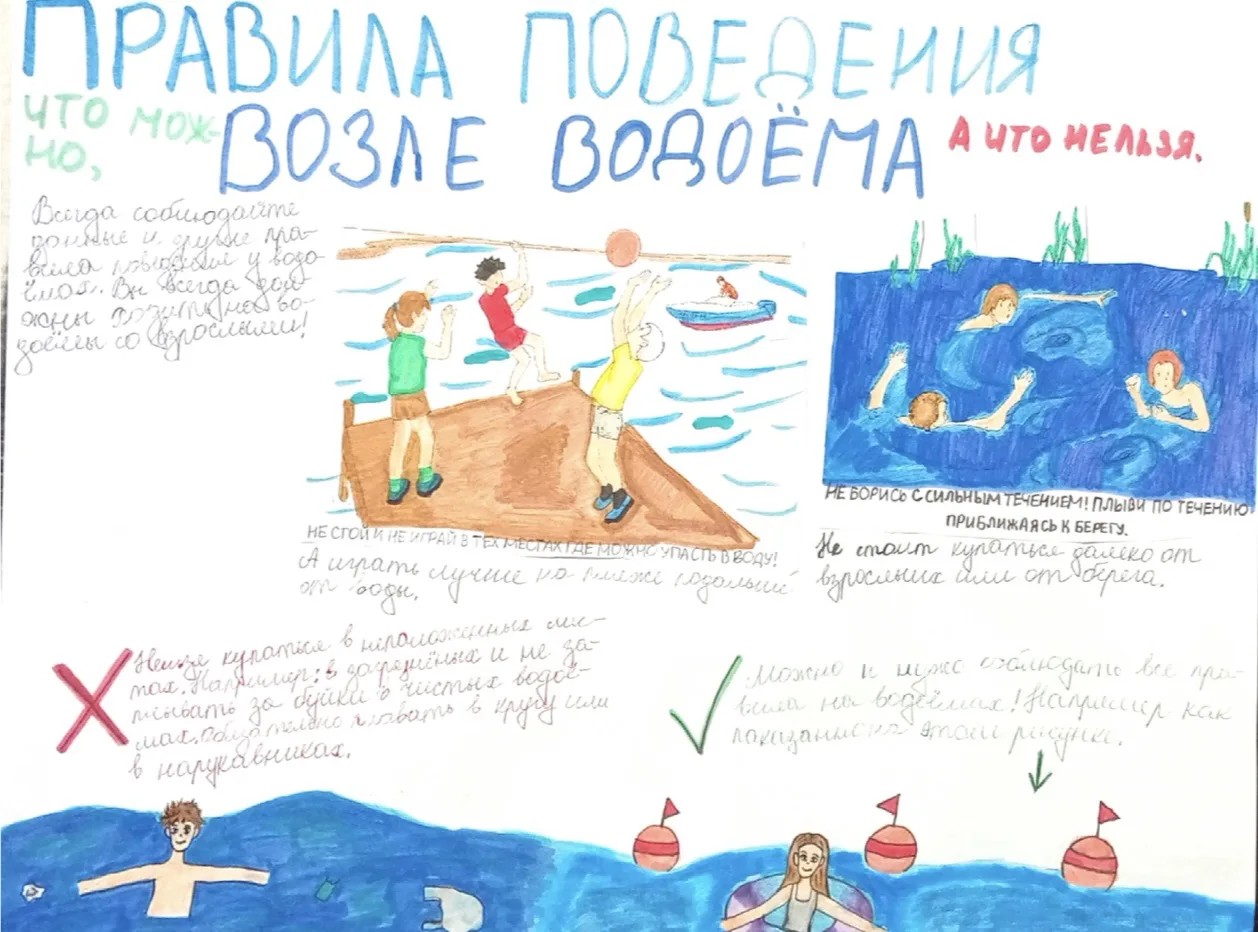 ПРАВИЛА ПОВЕДЕНИЯ
ВОЗЛЕ ВОДОЁМА
ЧТО МОЖ-
НО,
А ЧТО НЕЛЬЗЯ.
Всегда соблюдайте
данные и другие пра-
вила поведения у водо-
ёмах. Вы всегда дол-
жны на во-
доёмы со взрослыми!
НЕ СТОЙ И НЕ ИГРАЙ В ТЕХ МЕСТАХ ГДЕ МОЖНО УПАСТЬ В ВОДУ!
А играть лучше на пляже подальше
от воды.
НЕ БОРИСЬ С СИЛЬНЫМ ТЕЧЕНИЕМ! ПЛЫВИ ПО ТЕЧЕНИЮ
ПРИБЛИЖАЯСЬ К БЕРЕГУ.
Не стоит купаться далеко от
взрослых или от берега.
Нельзя купаться в неположенных мес-
тах. Например: в и не за-
плывать за буйки в чистых водоё-
мах. обязательно плавать в кругу или
в нарукавниках.
Можно и нужно соблюдать все пра-
вила на водоёмах! Например как
показанно на этом рисунке.